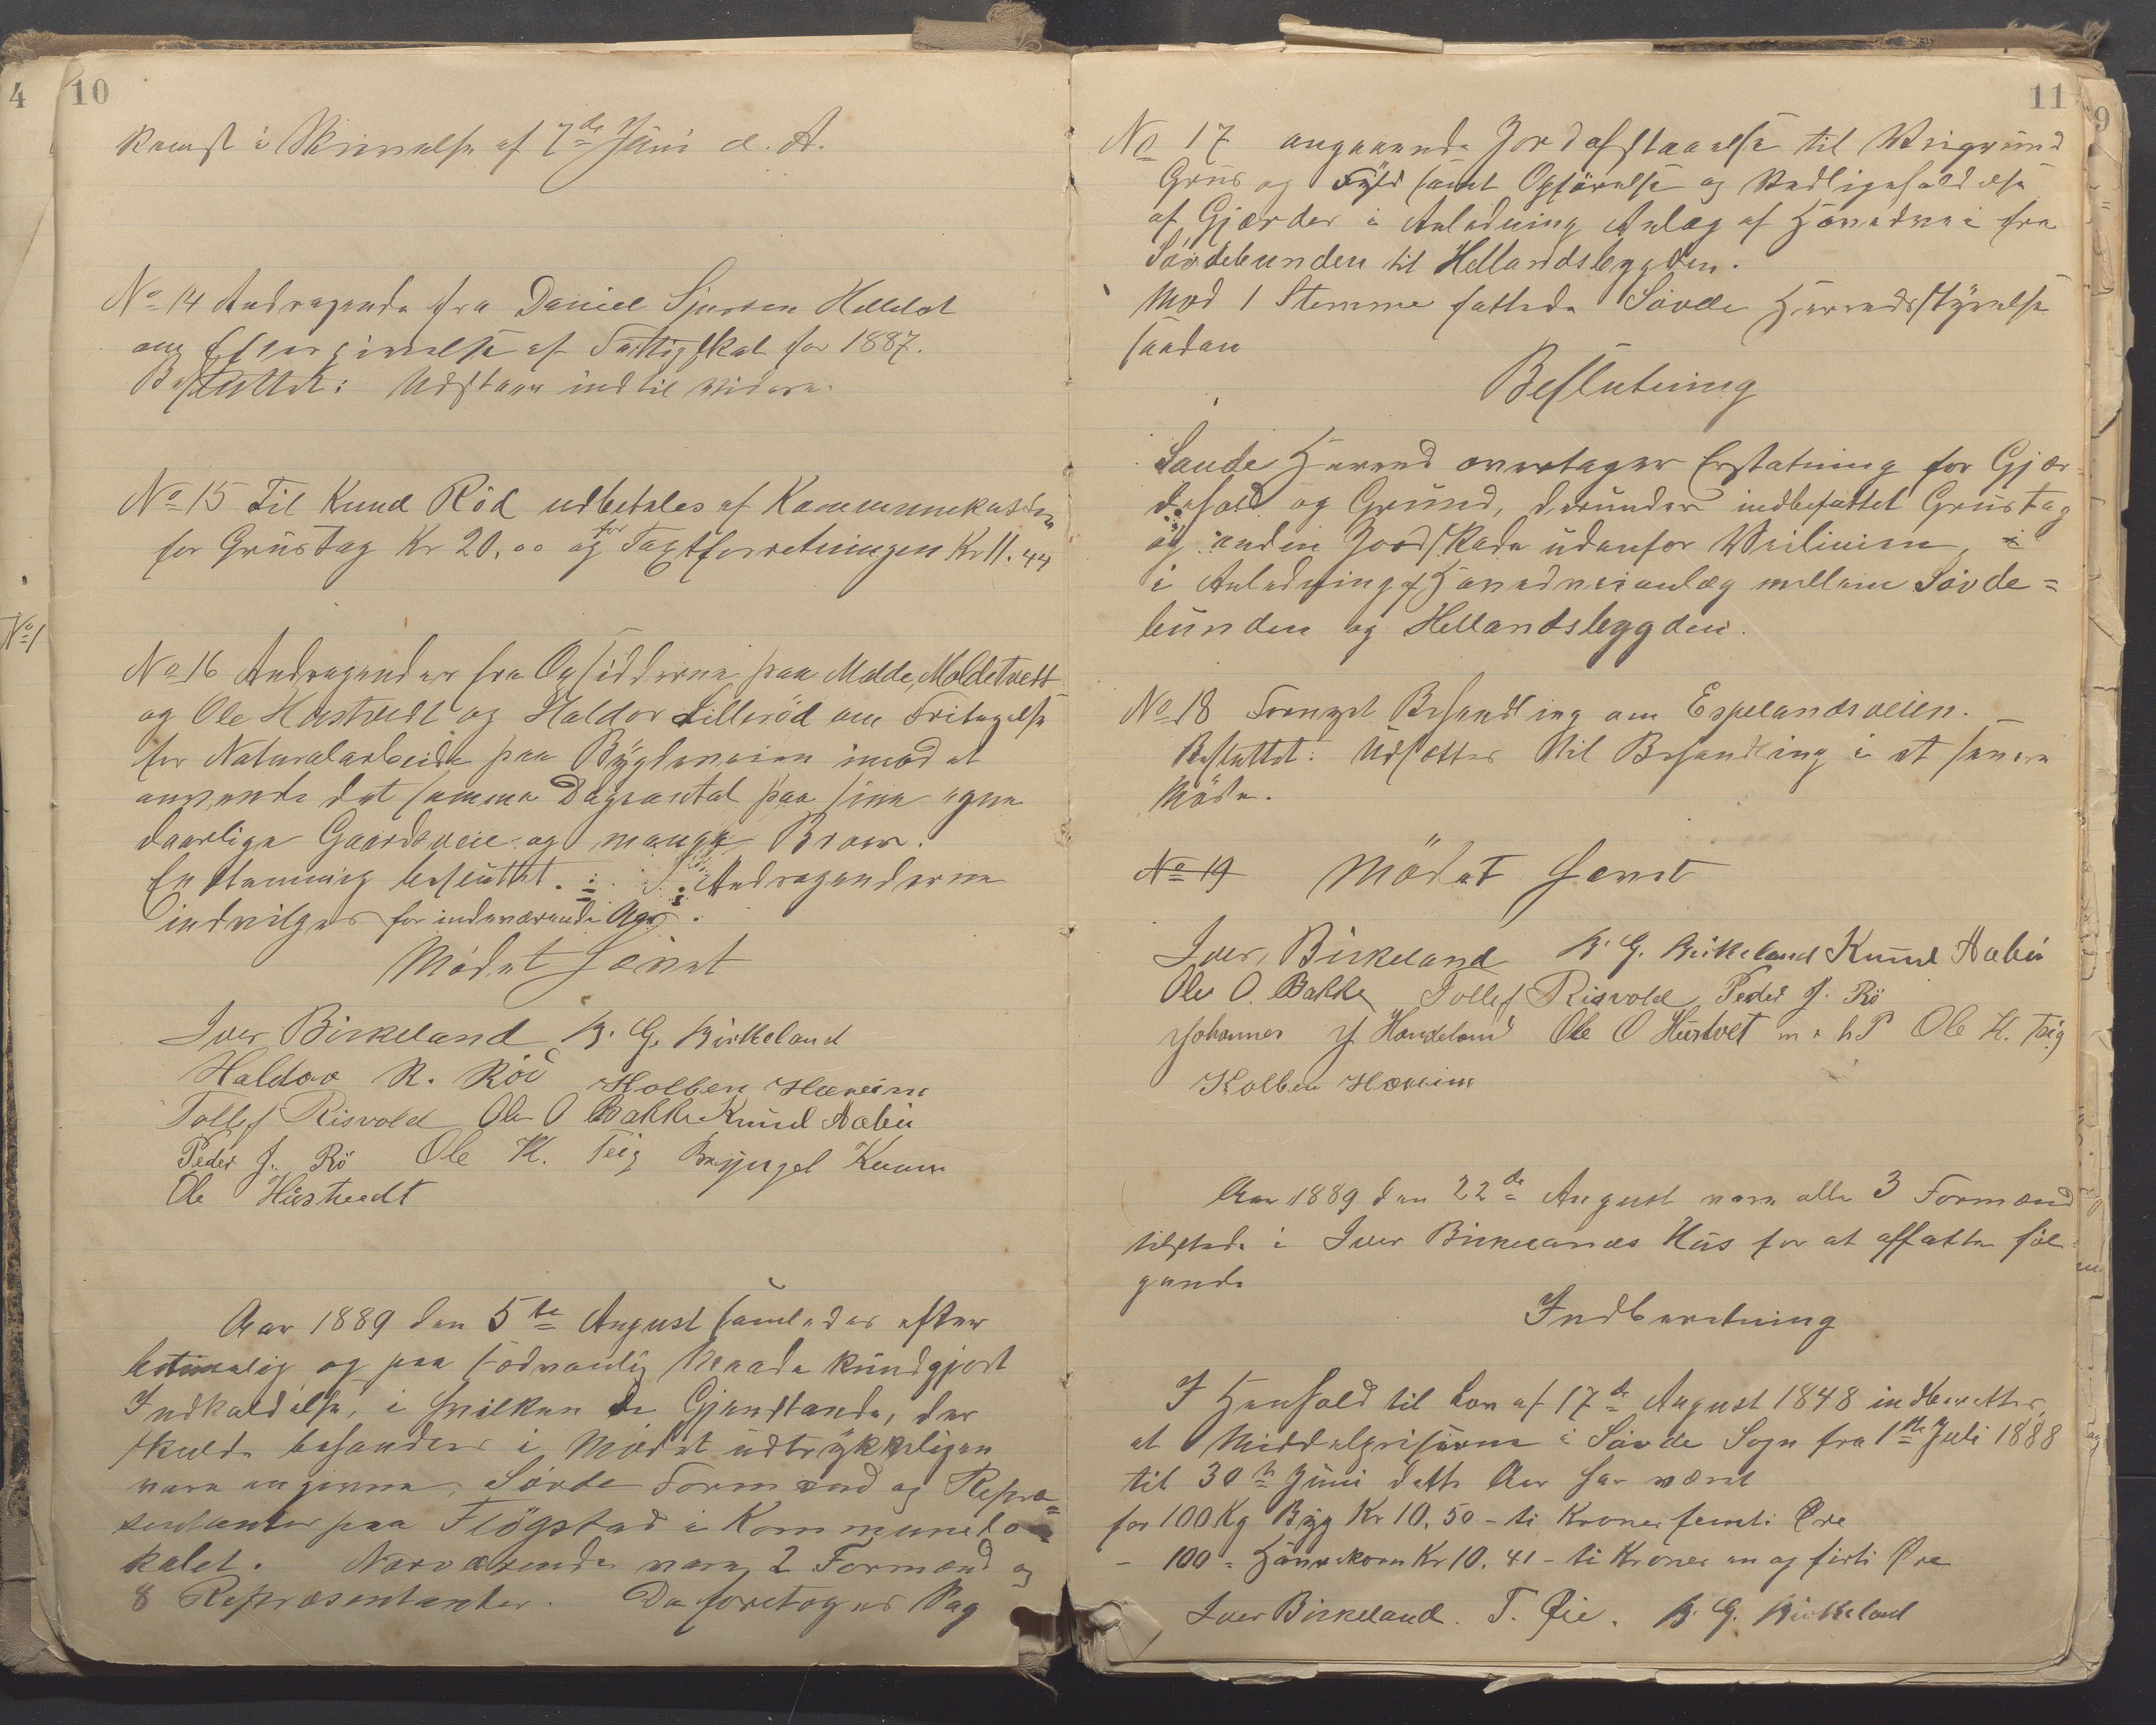 4
10
komst i Skrivelse af 7de Juni d. A.
No 14 Andragende fra Daniel Sjursen Helldal
om Eftergivelse af Fattigskat for 1887.
Besluttet: Udstaar indtil videre.
No 15 Til Knud Röd udbetales af Kommunekassen
for Grustag Kr 20.00 og for Taxtforretningen Kr 11.44
No 1
No 16 Andragender fra Opsidderne paa Molde, Moldetvett
og Ole Hustvedt og Haldor Lilleröd om Fritagelse
for Naturalarbeide paa Bygdeveien imod at
anvende det samme Dagsantal paa sine egne
daarlige Gaardsveie og mange Broer.
Enstemmig besluttet. : Andragenderne
indvilges for indeværende Aar.
Mödet hævet
Iver Birkeland B. G. Birkeland
Haldor K. Röd Kolben Hæreim
Tollef Risvold Ole O Bakke Knud Aabü
Peder J. Rö Ole K. Teig Brynjel
Ole Hustvedt
Aar 1889 den 5te August samledes efter
betimelig og paa sædvanlig Maade kundgjort
Indkaldelse, i hvilken de Gjenstande, der
skulde behandles i Mödet udtrykkeligen
vare angivne, Sövde Formænd og Repræ=
sentanter paa Flögstad i Kommunelo=
kalet. Nærværende vare 2 Formænd og
8 Repræsentanter. Da foretoges Sag
11
9
No 17 angaaende Jordafstaaelse til Veigrund
Grus og Fyld samt Opförelse og Vedligeholdelse
af Gjærder i Anledning Anlæg af Hovedvei fra
Sövdebunden til Hellandsbygden.
Mod 1 Stemme fattede Sövde Herredsstyrelse
saadan
Beslutning
Saude Herred overtager Erstatning for Gjær
dehold og Grund, derunder indbefattet Grustag
og anden Jordskade udenfor Veilinien, i
i Anledning af Hovedveianlæg mellem Sövde=
bunden og Hellandsbygden.
No 18 Fornyet Behandling om Espelandsveien.
Besluttet: Udsættes til Behandling i et senere
Möde.
No 19 Mödet hævet
Iver Birkeland B. G. Birkeland Knud Aabü
Ole O. Bakke Tollef Risvold Peder J. Rö
Johannes J. Handeland Ole O Hustvet m. p. P Ole K. Teig
Kolben Hæreim
Aar 1889 den 22de August vare alle 3 Formænd
tilstede i Iver Birkelands Hus for at affatte föl
gende
Indberetning
I Henhold til Lov af 17de August 1848 indberettes,
at Middelpriserne i Sövde Sogn fra 1ste Juli 1888
til 30te Juni dette Aar har været
for 100 Kg Byg Kr 10.50 - ti Kroner femti Øre
- 100 = Havrekorn Kr 10.41 - ti Kroner en og firti Øre
Iver Birkeland. T. Øie. B. G. Birkeland